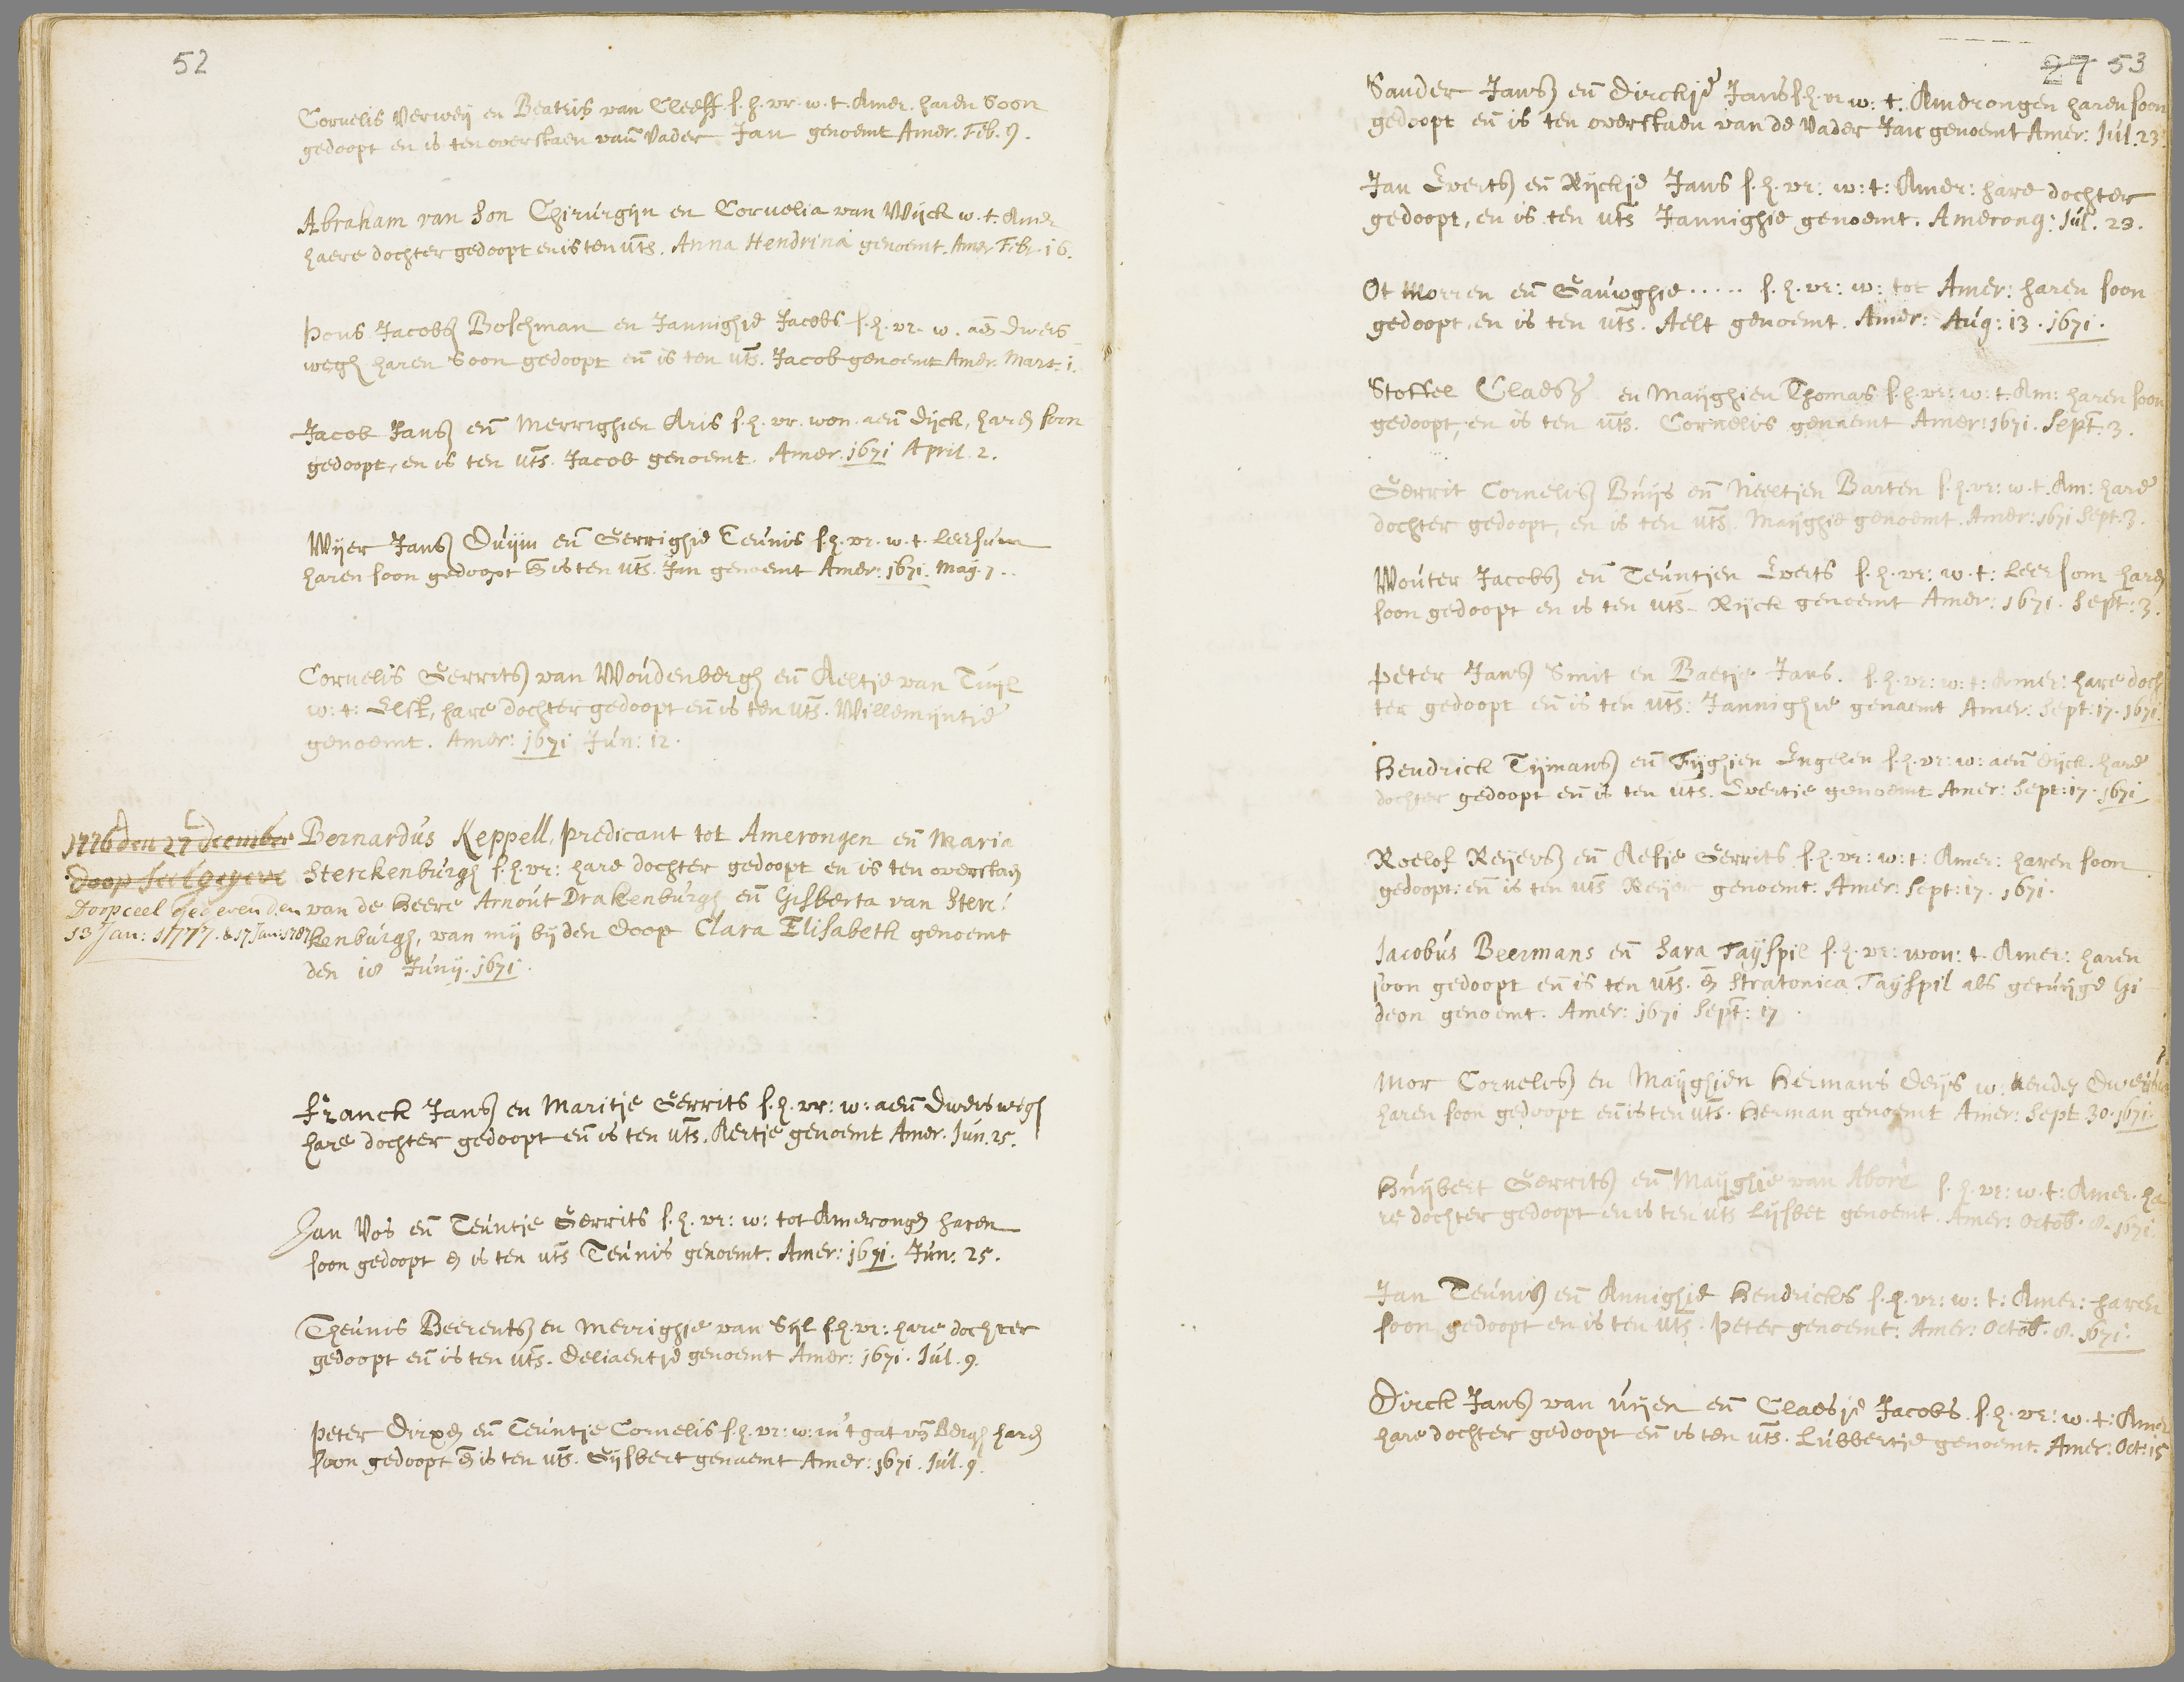 52
Cornelis Verweij en Beatris van Cleeff s. h. vr. w. t. Amer. haren Soon
gedoopt en is ten overstaen vañ Vader Jan genoemt Amer. Feb. 9.
Abraham van Son Chirurgijn en Cornelia van Wijck w. t. Amer
haere dochter gedoopt en is ten uts. Anna Hendrina genoemt. Amer. Febr. 16.
Pons Jacobs Boschman en Jannighie Jacobs s. h. vr. w. aen Dwers
wegh haren Soon gedoopt eñ is ten uts. Jacob genoemt Amer. Mart. 1.
Jacob Jans eñ Merrighien Aris s. h. vr. won. aen Dijck, haren soon
gedoopt, en is ten uts. Jacob genoemt. Amer. 1671 April. 2.
Wijer Jans Duijm eñ Gerrighie Teunis s. h. vr. w. t. Leersum
haren soon gedoopt eñ is ten uts. Jan genoemt Amer: 1671. Maij. 7.
Cornelis Gerrits van Woudenbergh eñ Aeltje van Tuijl
w: t: Elst, hare dochter gedoopt eñ is ten uts. Willemijntie
genoemt. Amer: 1671 Jun: 12.
1776 den 27 December
Doop Seel gegeve
Doopceel gegeven den
13 Jan: 1777. & 17 Jan: 1787
Bernardus Keppell, predicant tot Amerongen eñ Maria
Sterckenburgh s. h. vr: hare dochter gedoopt en is ten overstaen
van de Heere Arnout Drakenburgh eñ Gisberta van Sterc:
kenburgh, van mij bij den doop Clara Elisabeth genoemt
den 18 Junij. 1671.
Franck Jans en Maritje Gerrits s. h. vr: w: aeñ Dwerswegh
hare dochter gedoopt eñ is ten uts. Aertje genoemt Amer. Jun. 25.
Jan Vos eñ Teuntje Gerrits s. h. vr: w: tot Amerongen haren
soon gedoopt en is ten uts Teunis genoemt. Amer: 1671. Jun: 25.
Theunis Beerents en Merrighie van Sijl s. h. vr: hare dochter
gedoopt eñ is ten uts. Deliaentje genoemt Amer: 1671. Jul. 9.
Peter Dirxen eñ Teuntje Cornelis s. h. vr: w: in 't gat van Bergh haren
soon gedoopt eñ is ten uts. Gijsbert genaemt Amer: 1671. Jul. 9.
27 53
Sander Jans eñ Dirckje Jans s. h. vr w: t. Amerongen haren soon
gedoopt eñ is ten overstaen van de Vader Jan genoemt Amer: Jul. 23.
Jan Everts eñ Rijckje Jans s. h. vr: w: t: Amer: hare dochter
gedoopt, en is ten uts Jannighie genoemt. Amerong: Jul. 23.
Ot Morren eñ Gauwghie ..... s. h. vr: w: tot Amer: haren soon
gedoopt, en is ten uts. Aelt genoemt. Amer: Aug: 13. 1671.
Stoffel Claesz en Maijghien Thomas s. h. vr: w: t. Am: haren soon
gedoopt, en is ten uts. Cornelis genaemt Amer: 1671. Sept. 3.
Gerrit Cornelis Buijs eñ Neeltjen Barten s. h. vr: w. t. Am: hare
dochter gedoopt, en is ten uts. Maijghie genoemt. Amer: 1671 Sept. 3.
Wouter Jacobs eñ Teuntjen Everts s. h. vr: w. t: Leersom haren
soon gedoopt en is ten uts. Rijck genoemt Amer: 1671. Sept: 3.
Peter Jans Smit en Baetje Jans. s. h. vr: w: t: Amer: hare doch
ter gedoopt eñ is ten uts: Jannighie genaemt Amer: Sept: 17. 1671.
Hendrick Tijmans eñ Fijghien Engelen s. h. vr: w: aeñ Dijck. hare
dochter gedoopt eñ is ten uts. Evertje genoemt Amer: Sept: 17. 1671
Roelof Reijers eñ Aefje Gerrits s. h. vr: w: t: Amer: haren soon
gedoopt: eñ is ten uts Reijer genoemt: Amer: Sept: 17. 1671.
Jacobus Beermans eñ Sara Taijspil s. h. vr: won: t. Amer: haren
soon gedoopt eñ is ten uts. en Stratonica Taijspil als getuijge Gi
deon genoemt. Amer: 1671 Sept: 17.
Mor Cornelis en Maijghien Hermans w.
haren soon gedoopt eñ is ten uts. Herman genoemt Amer: Sept. 30. 1671.
Huijbert Gerrits eñ Maijghie van s. h. vr: w. t: Amer. ha
re dochter gedoopt en is ten uts Lijsbet genoemt. Amer: Octob. 8. 1671.
Jan Teunis eñ Annighie Hendricks s. h. vr: w: t: Amer: haren
soon gedoopt en is ten uts. Peter genoemt: Amer: Octob. 8. 1671.
Dirck Jans van eñ Claesje Jacobs s. h. vr: w. t: Amer
hare dochter gedoopt eñ is ten uts. Lubbertje genoemt. Amer: Oct: 15